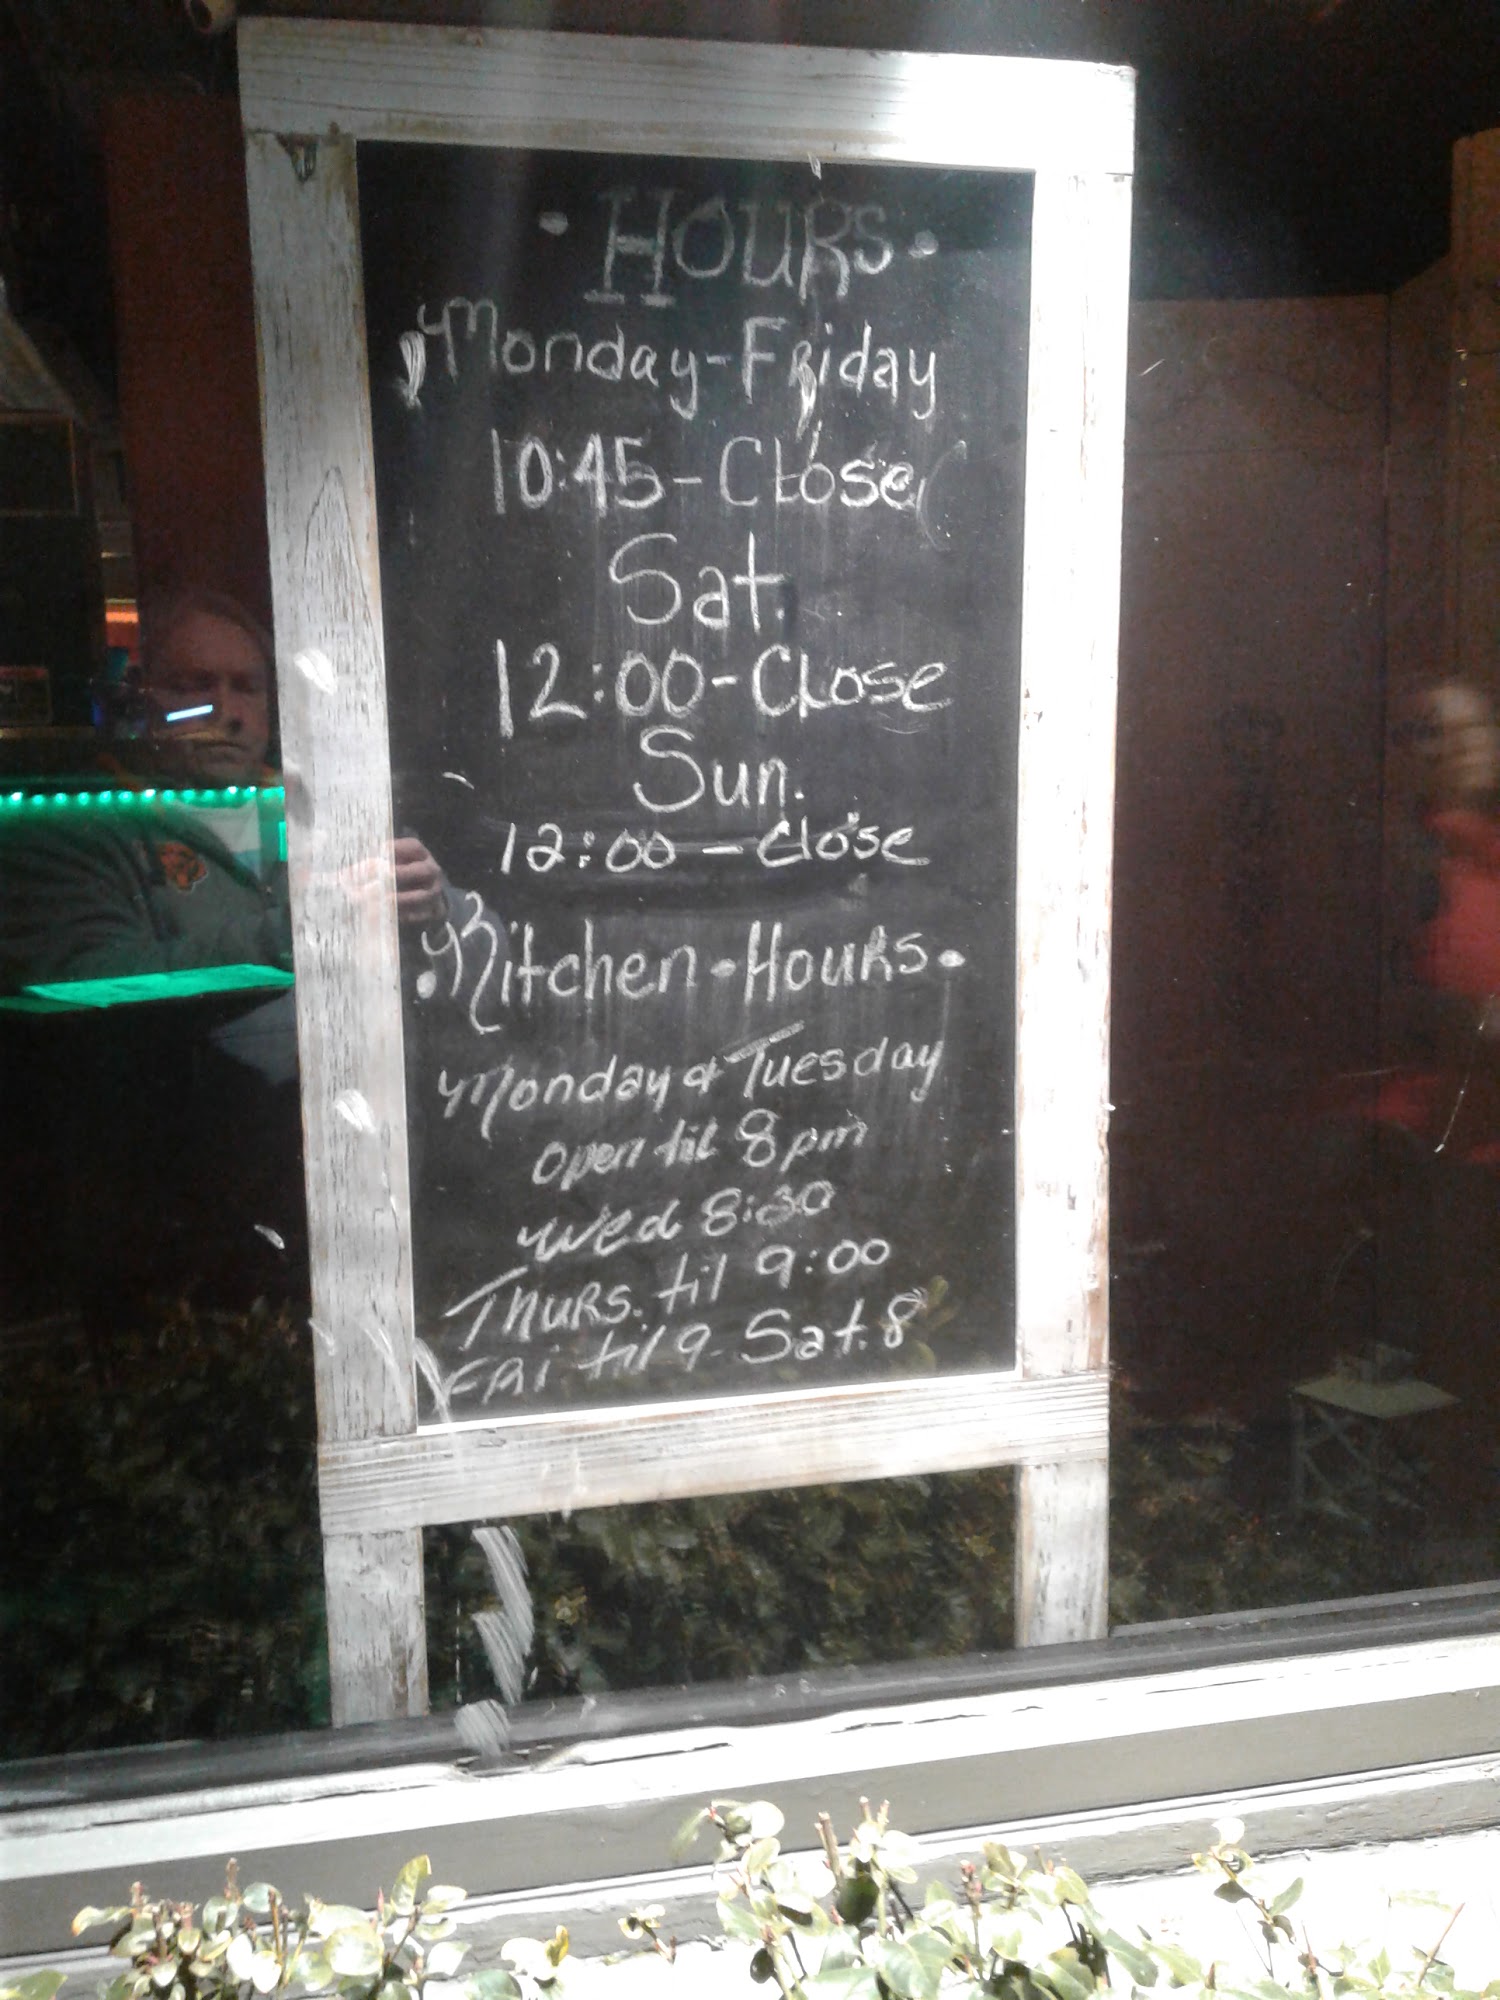 • HOURS •
Monday-Friday
10:45-Close
Sat.
12:00-Close
Sun.
12:00 - Close
• Kitchen • Hours •
Monday & Tuesday
open til 8pm
Wed 8:30
Thurs. til 9:00
Fri til 9 - Sat. 8